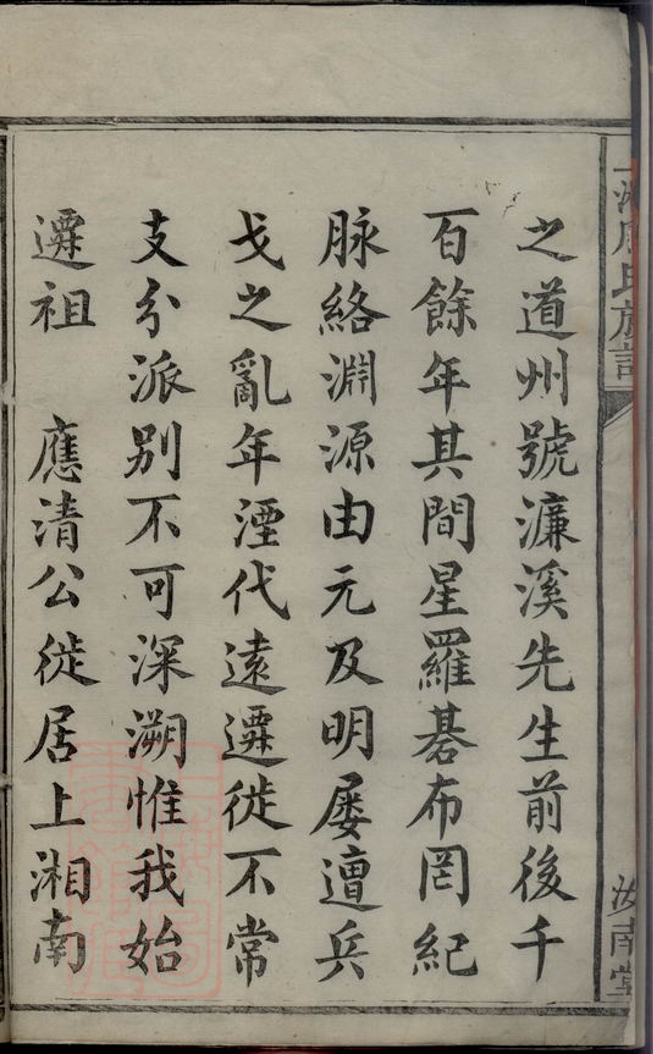 之道州號濂溪先生前後千
百餘年其間星羅碁布罔紀
脉絡淵源由元及明屡遭兵
戈之亂年湮代遠遷徙不常
支分派别不可深溯惟我始
遷祖　應清公徙居上湘南
上湘周氏族譜
汝南堂